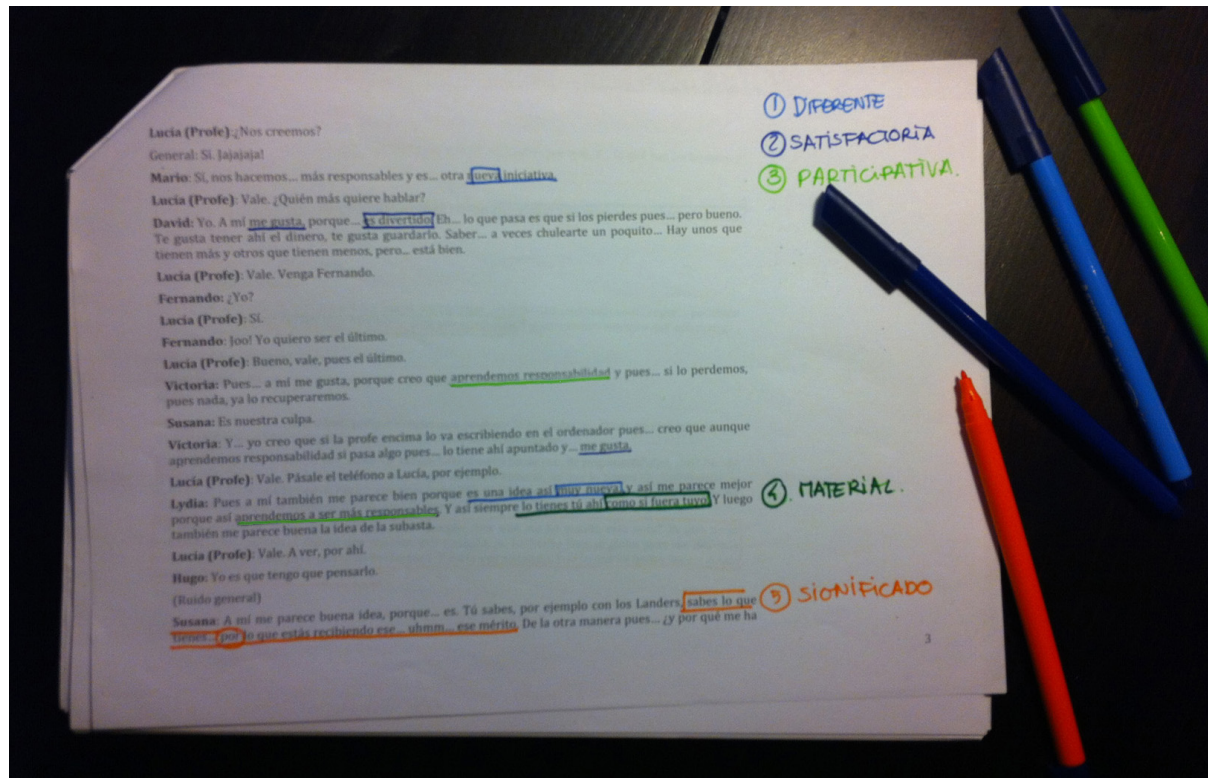 ① DIFERENTE
② SATISFACTORIA
③ PARTICIPATIVA.
Lucía (Profe):¿Nos creemos?
General: Si. Jajajaja!
Mario: Si, nos hacemos... más responsables y es... otra nueva iniciativa.
Lucía (Profe): Vale. ¿Quién más quiere hablar?
David: Yo. A mí me gusta, porque... es divertido. Eh... lo que pasa es que si los pierdes pues... pero bueno.
Te gusta tener ahí el dinero, te gusta guardarlo. Saber... a veces chulearte un poquito... Hay unos que
tienen más y otros que tienen menos, pero... está bien.
Lucía (Profe): Vale. Venga Fernando.
Fernando: ¿Yo?
Lucía (Profe): Sí.
Fernando: Joo! Yo quiero ser el último.
Lucía (Profe): Bueno, vale, pues el último.
Victoria: Pues... a mí me gusta, porque creo que aprendemos responsabilidad y pues... si lo perdemos,
pues nada, ya lo recuperaremos.
Susana: Es nuestra culpa.
Victoria: Y... yo creo que si la profe encima lo va escribiendo en el ordenador pues... creo que aunque
aprendemos responsabilidad si pasa algo pues... lo tiene ahí apuntado y... me gusta.
Lucía (Profe): Vale. Pásale el teléfono a Lucía, por ejemplo.
Lydia: Pues a mí también me parece bien porque es una idea así muy nueva y así me parece mejor
porque así aprendemos a ser más responsables. Y así siempre lo tienes tú ahí como si fuera tuyo. Y luego
también me parece buena la idea de la subasta.
④. MATERIAL.
Lucía (Profe): Vale. A ver, por ahí.
Hugo: Yo es que tengo que pensarlo.
(Ruido general)
Susana: A mí me parece buena idea, porque... es. Tú sabes, por ejemplo con los Landers, sabes lo que
tienes... por lo que estás recibiendo ese... uhmm... ese mérito. De la otra manera pues... ¿y por qué me ha
⑤ SIGNIFICADO
3